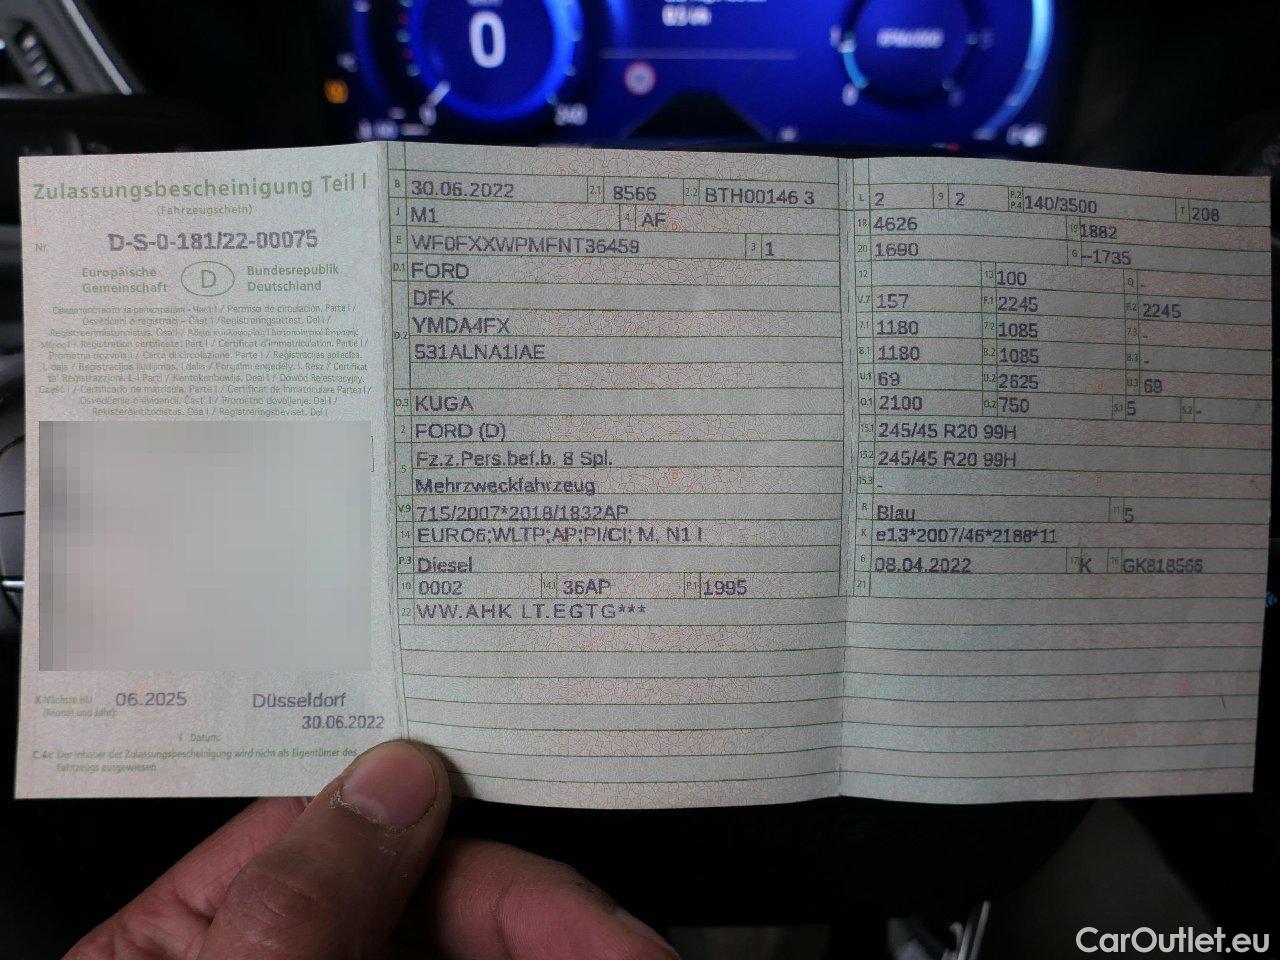 0
240
0
Zulassungsbescheinigung Teil I
(Fahrzeugschein)
Nr. D-S-0-181/22-00075
Europäische Gemeinschaft
D
Bundesrepublik Deutschland
X Nächste HU (Monat und Jahr) 06.2025
Düsseldorf
30.06.2022
Datum:
C.4c Der Inhaber der Zulassungsbescheinigung wird nicht als Eigentümer des
Fahrzeugs ausgewiesen.
B 30.06.2022 2.1 8566 2.2 BTH00146 3
J M1 4 AF
E WF0FXXWPMFNT36459 3 1
D.1 FORD
DFK
D.2 YMDA4FX
531ALNA1IAE
D.3 KUGA
2 FORD (D)
5 Fz.z.Pers.bef.b. 8 Spl.
Mehrzweckfahrzeug
V.9 715/2007*2018/1832AP
14 EURO6;WLTP;AP;PI/CI; M, N1 I
P.3 Diesel
10 0002 14.1 36AP P.1 1995
22 WW.AHK LT.EGTG***
L 2 9 2 P.2 P.4 140/3500 T 208
18 4626 19 1882
20 1690 G --1735
12 13 100 Q -
V.7 157 F.1 2245 F.2 2245
7.1 1180 7.2 1085 7.3 -
8.1 1180 8.2 1085 8.3 -
U.1 69 U.2 2625 U.3 69
O.1 2100 O.2 750 S.1 5 S.2 -
15.1 245/45 R20 99H
15.2 245/45 R20 99H
15.3 -
R Blau 11 5
K e13*2007/46*2188*11
6 08.04.2022 17 K 16 GK818566
21
CarOutlet.eu